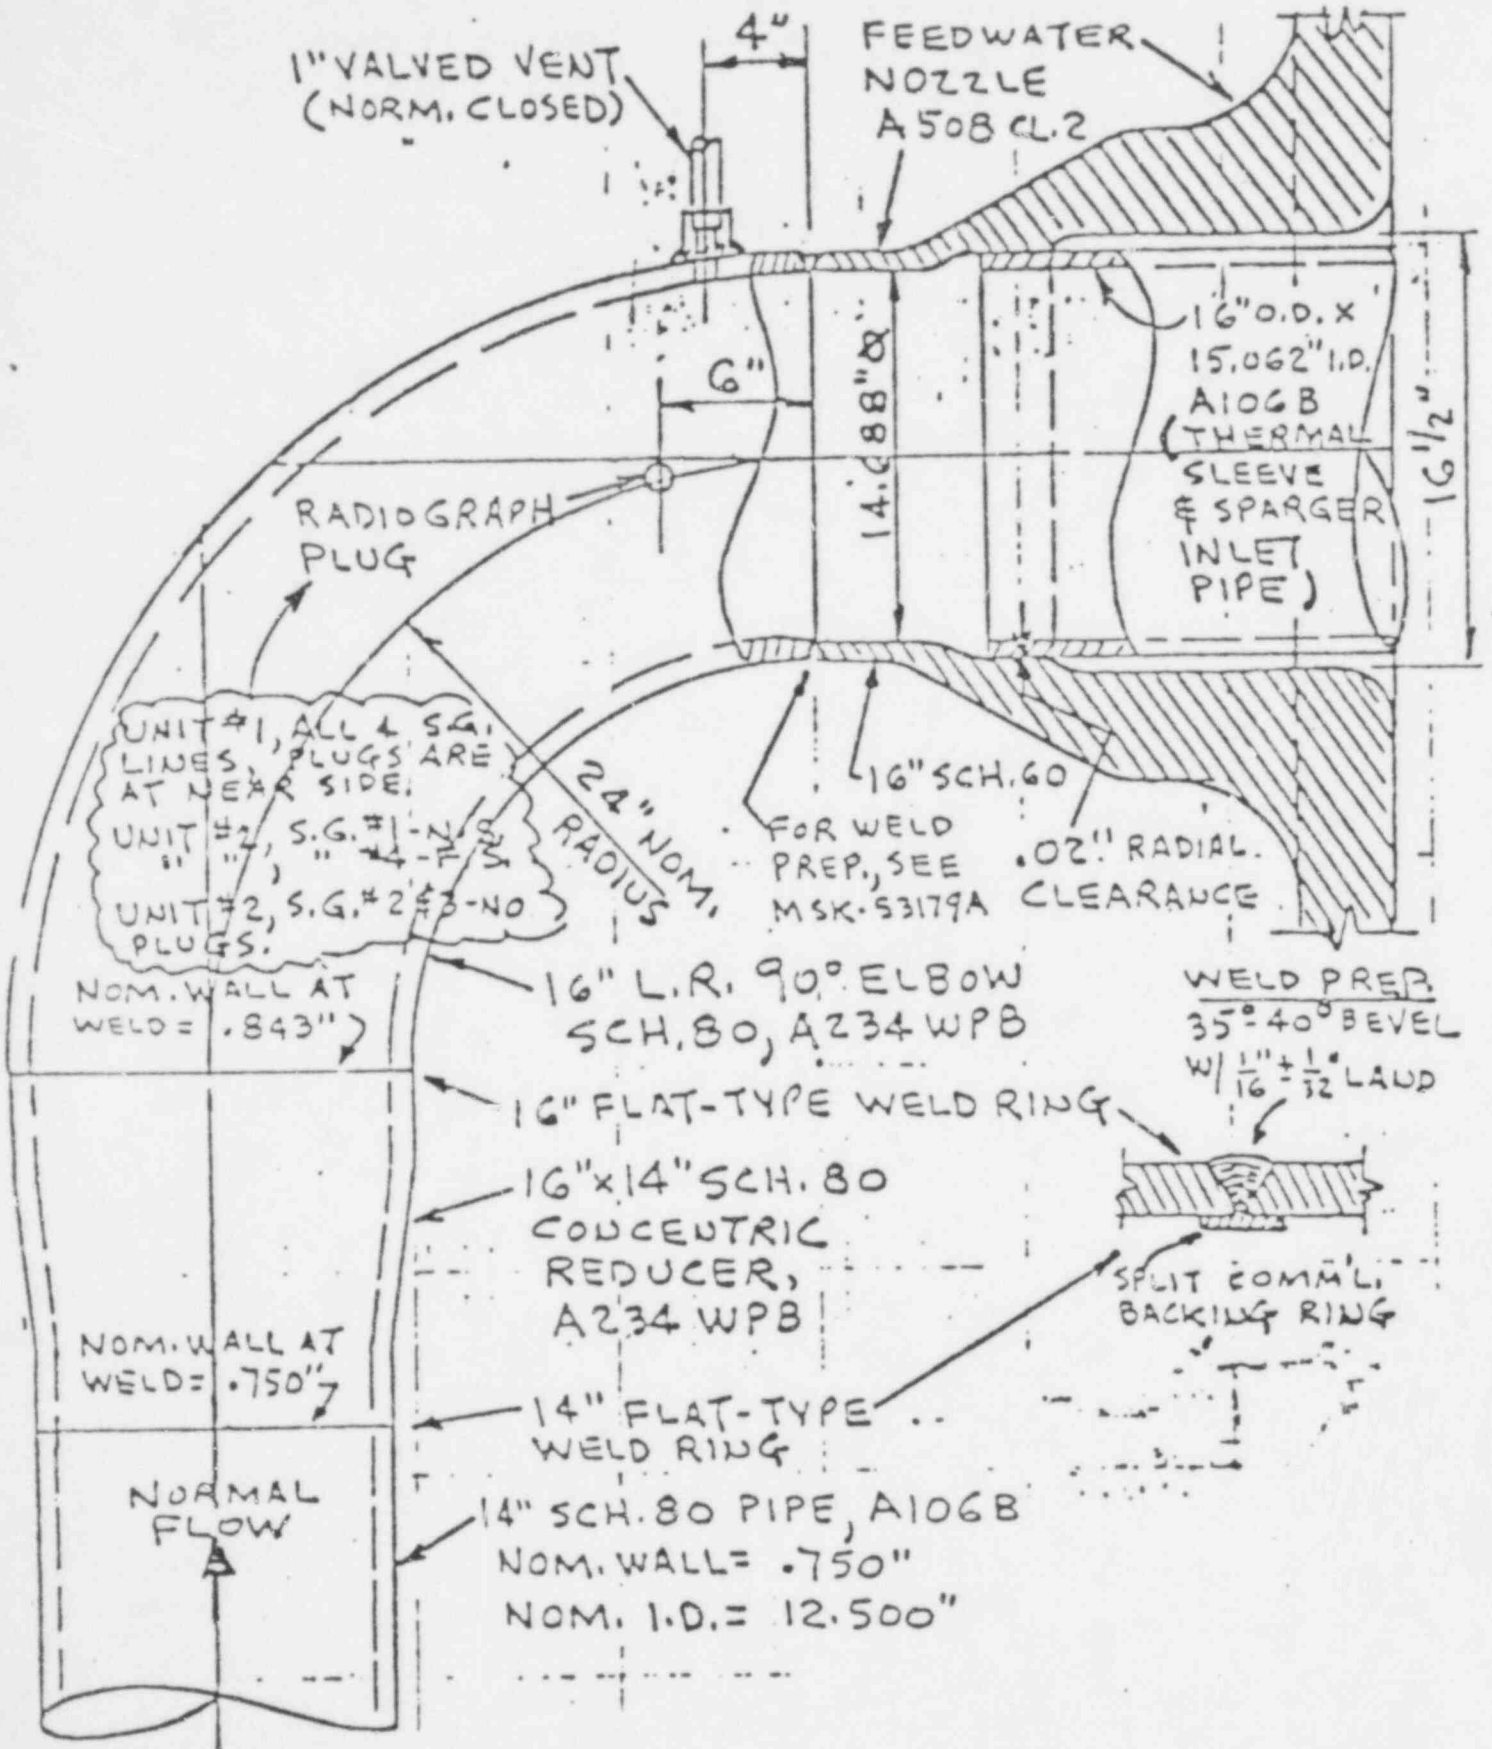 1" VALVED VENT
(NORM. CLOSED)
4"
FEEDWATER
NOZZLE
A508 CL.2
6"
14.688" Ø
16" O.D. X
15.062" I.D.
A106B
(THERMAL
SLEEVE
& SPARGER
INLET
PIPE)
16 1/2"
RADIOGRAPH
PLUG
UNIT #1, ALL 4 S.G.
LINES, PLUGS ARE
AT NEAR SIDE.
UNIT #2, S.G. #1-N.S.
" ", " #4-F.S.
UNIT #2, S.G. #2 & 3-NO
PLUGS.
24" NOM.
RADIUS
16" SCH. 60
FOR WELD
PREP., SEE
MSK-53179A
.02" RADIAL
CLEARANCE
NOM. WALL AT
WELD = .843"
16" L.R. 90° ELBOW
SCH. 80, A234 WPB
WELD PREP.
35°-40° BEVEL
W/ 1/16" ± 1/32" LAND
16" FLAT-TYPE WELD RING
16" x 14" SCH. 80
CONCENTRIC
REDUCER,
A234 WPB
SPLIT COMM'L.
BACKING RING
NOM. WALL AT
WELD = .750"
14" FLAT-TYPE
WELD RING
NORMAL
FLOW
14" SCH. 80 PIPE, A106B
NOM. WALL = .750"
NOM. I.D. = 12.500"